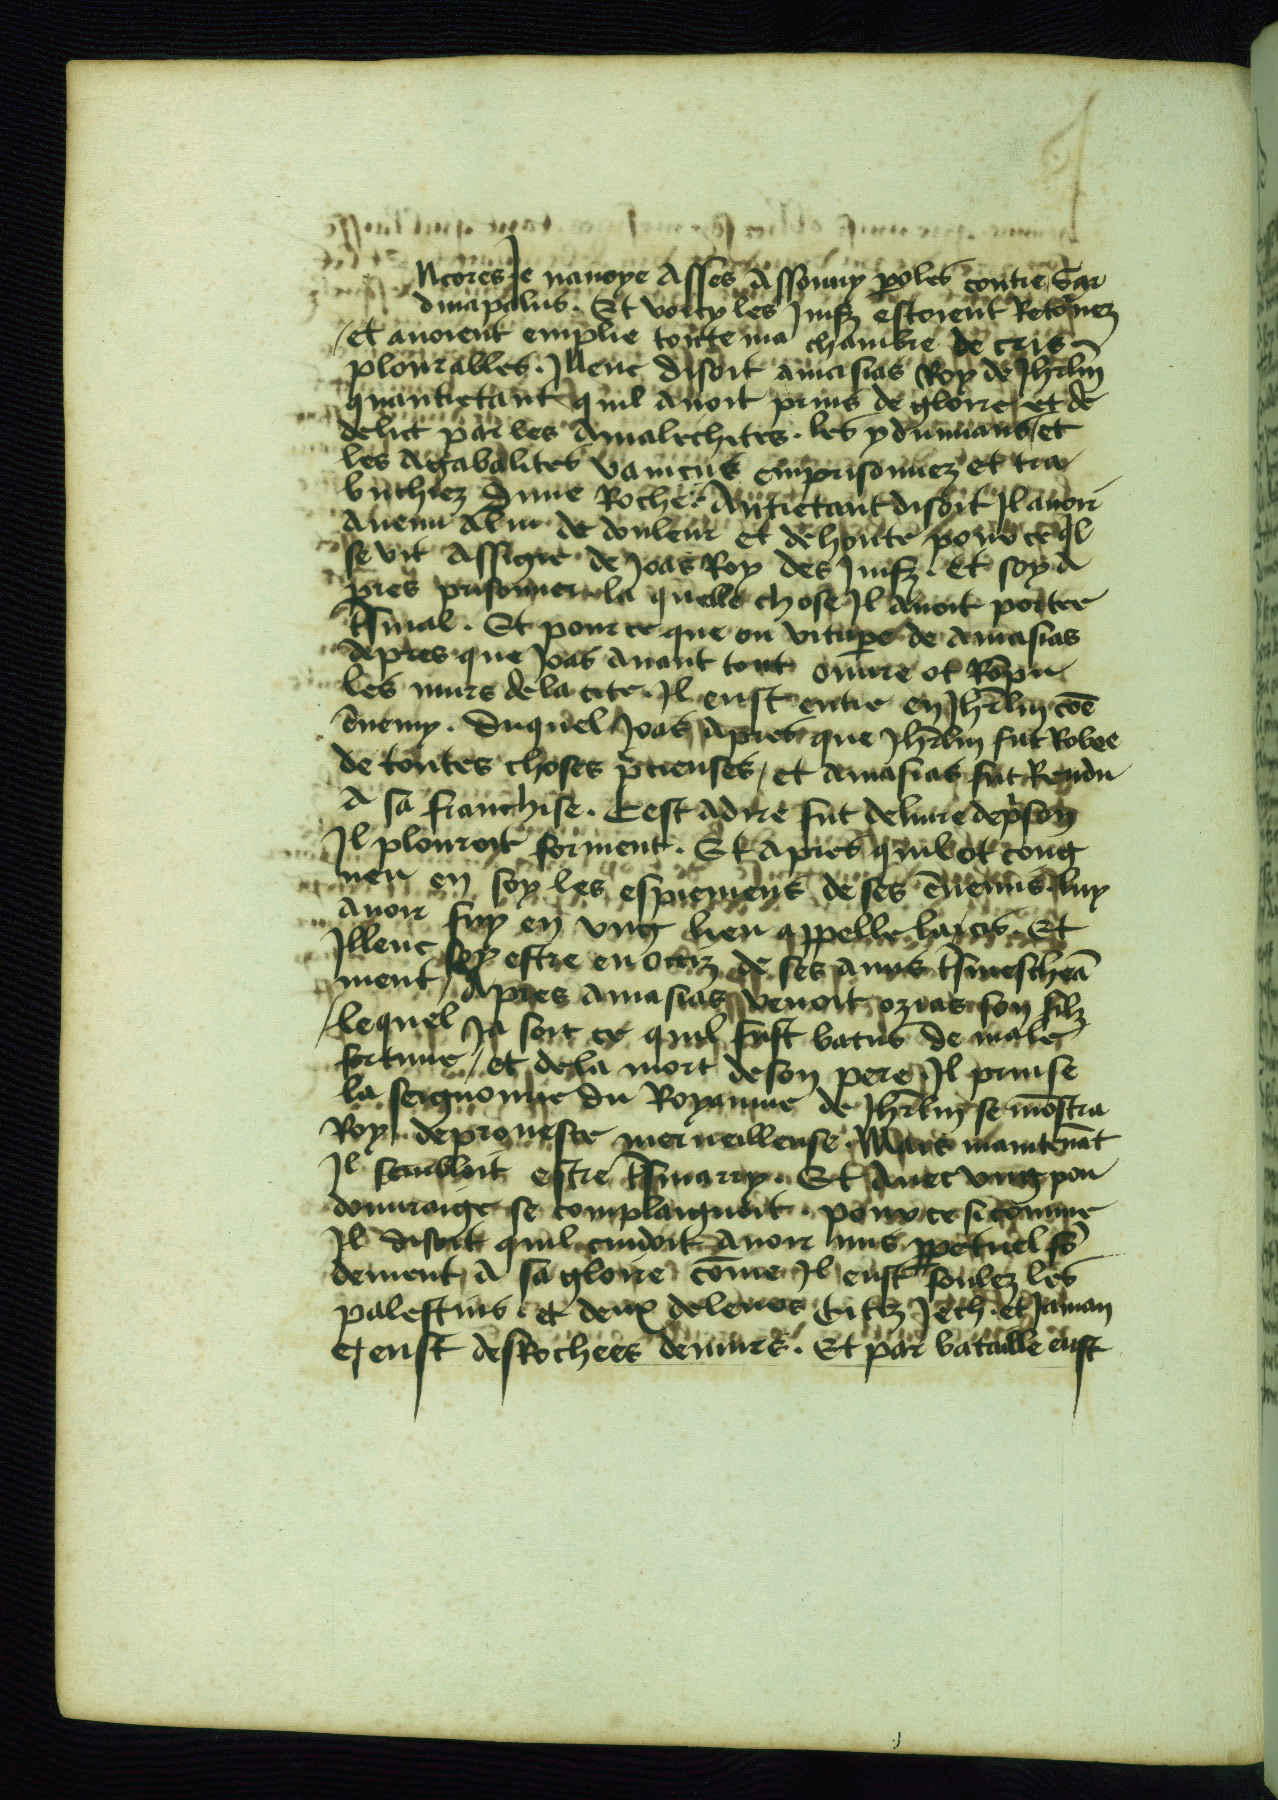 Ncores Je nauoye Asses Assouuy poles contre Sar
dinapalus. Et voicy les Juifz estoient Retornez
/et auoient emplie toutte ma chambre de cris
plourables. Illenc disoit amasias Roy de Jhrlm
quantietant quil auoit prins de gloire et de
delict par les Amalechites. les ydumians et
les Agabalites vaincus emprisonnez et tra
buchiez dune Roche. Autretant disoit Il auoir
Auenu de douleur et de honte pour ce ql
se vit Assigie de Joas Roy des Juifz. Et soy A
pres prisonnier la quelle chose Il auoit portee
tsmal. Et pour ce que ou vitupe de Amasias
Apres que Joas Auant tout oeuure ot Ropu
les murs de la cite. Il eust entre en Jhrlm coe
enemy. Duquel Joas Apres que Jhrlm fut Robee
de toutes choses pcieuses / et Amasias fut Rendu
A sa franchise. Cest adire fut deliure de pson
Il plouroit forment. Et Apres quil ot cong
neu en soy les espiemens de ses enemis luy
Auoir fuy en vng lieu appelle lacis. Et
Illenc soy estre en occiz de ses amis tsmeschea
ment / Apres amasias venoit ozias son filz
/lequel Ja soit ce quil fust batus de male
fortune / et de la mort de son pere. Il prinse
la seignourie du Royaume de Jhrlm se mostra
Roy de prouesce merueilleuse. Mais maintenat
Il sembloit estre tsmarry. Et Auec vng pou
douuraige se complaignoit. pour ce si comme
Il disoit quil cuidoit Auoir mis ppetuel fo
dement A sa gloire come Il eust foulez les
palestins. et deux de leurs citez Jeth. et Jaman
Et eust desRochees de murs. Et par bataille eust